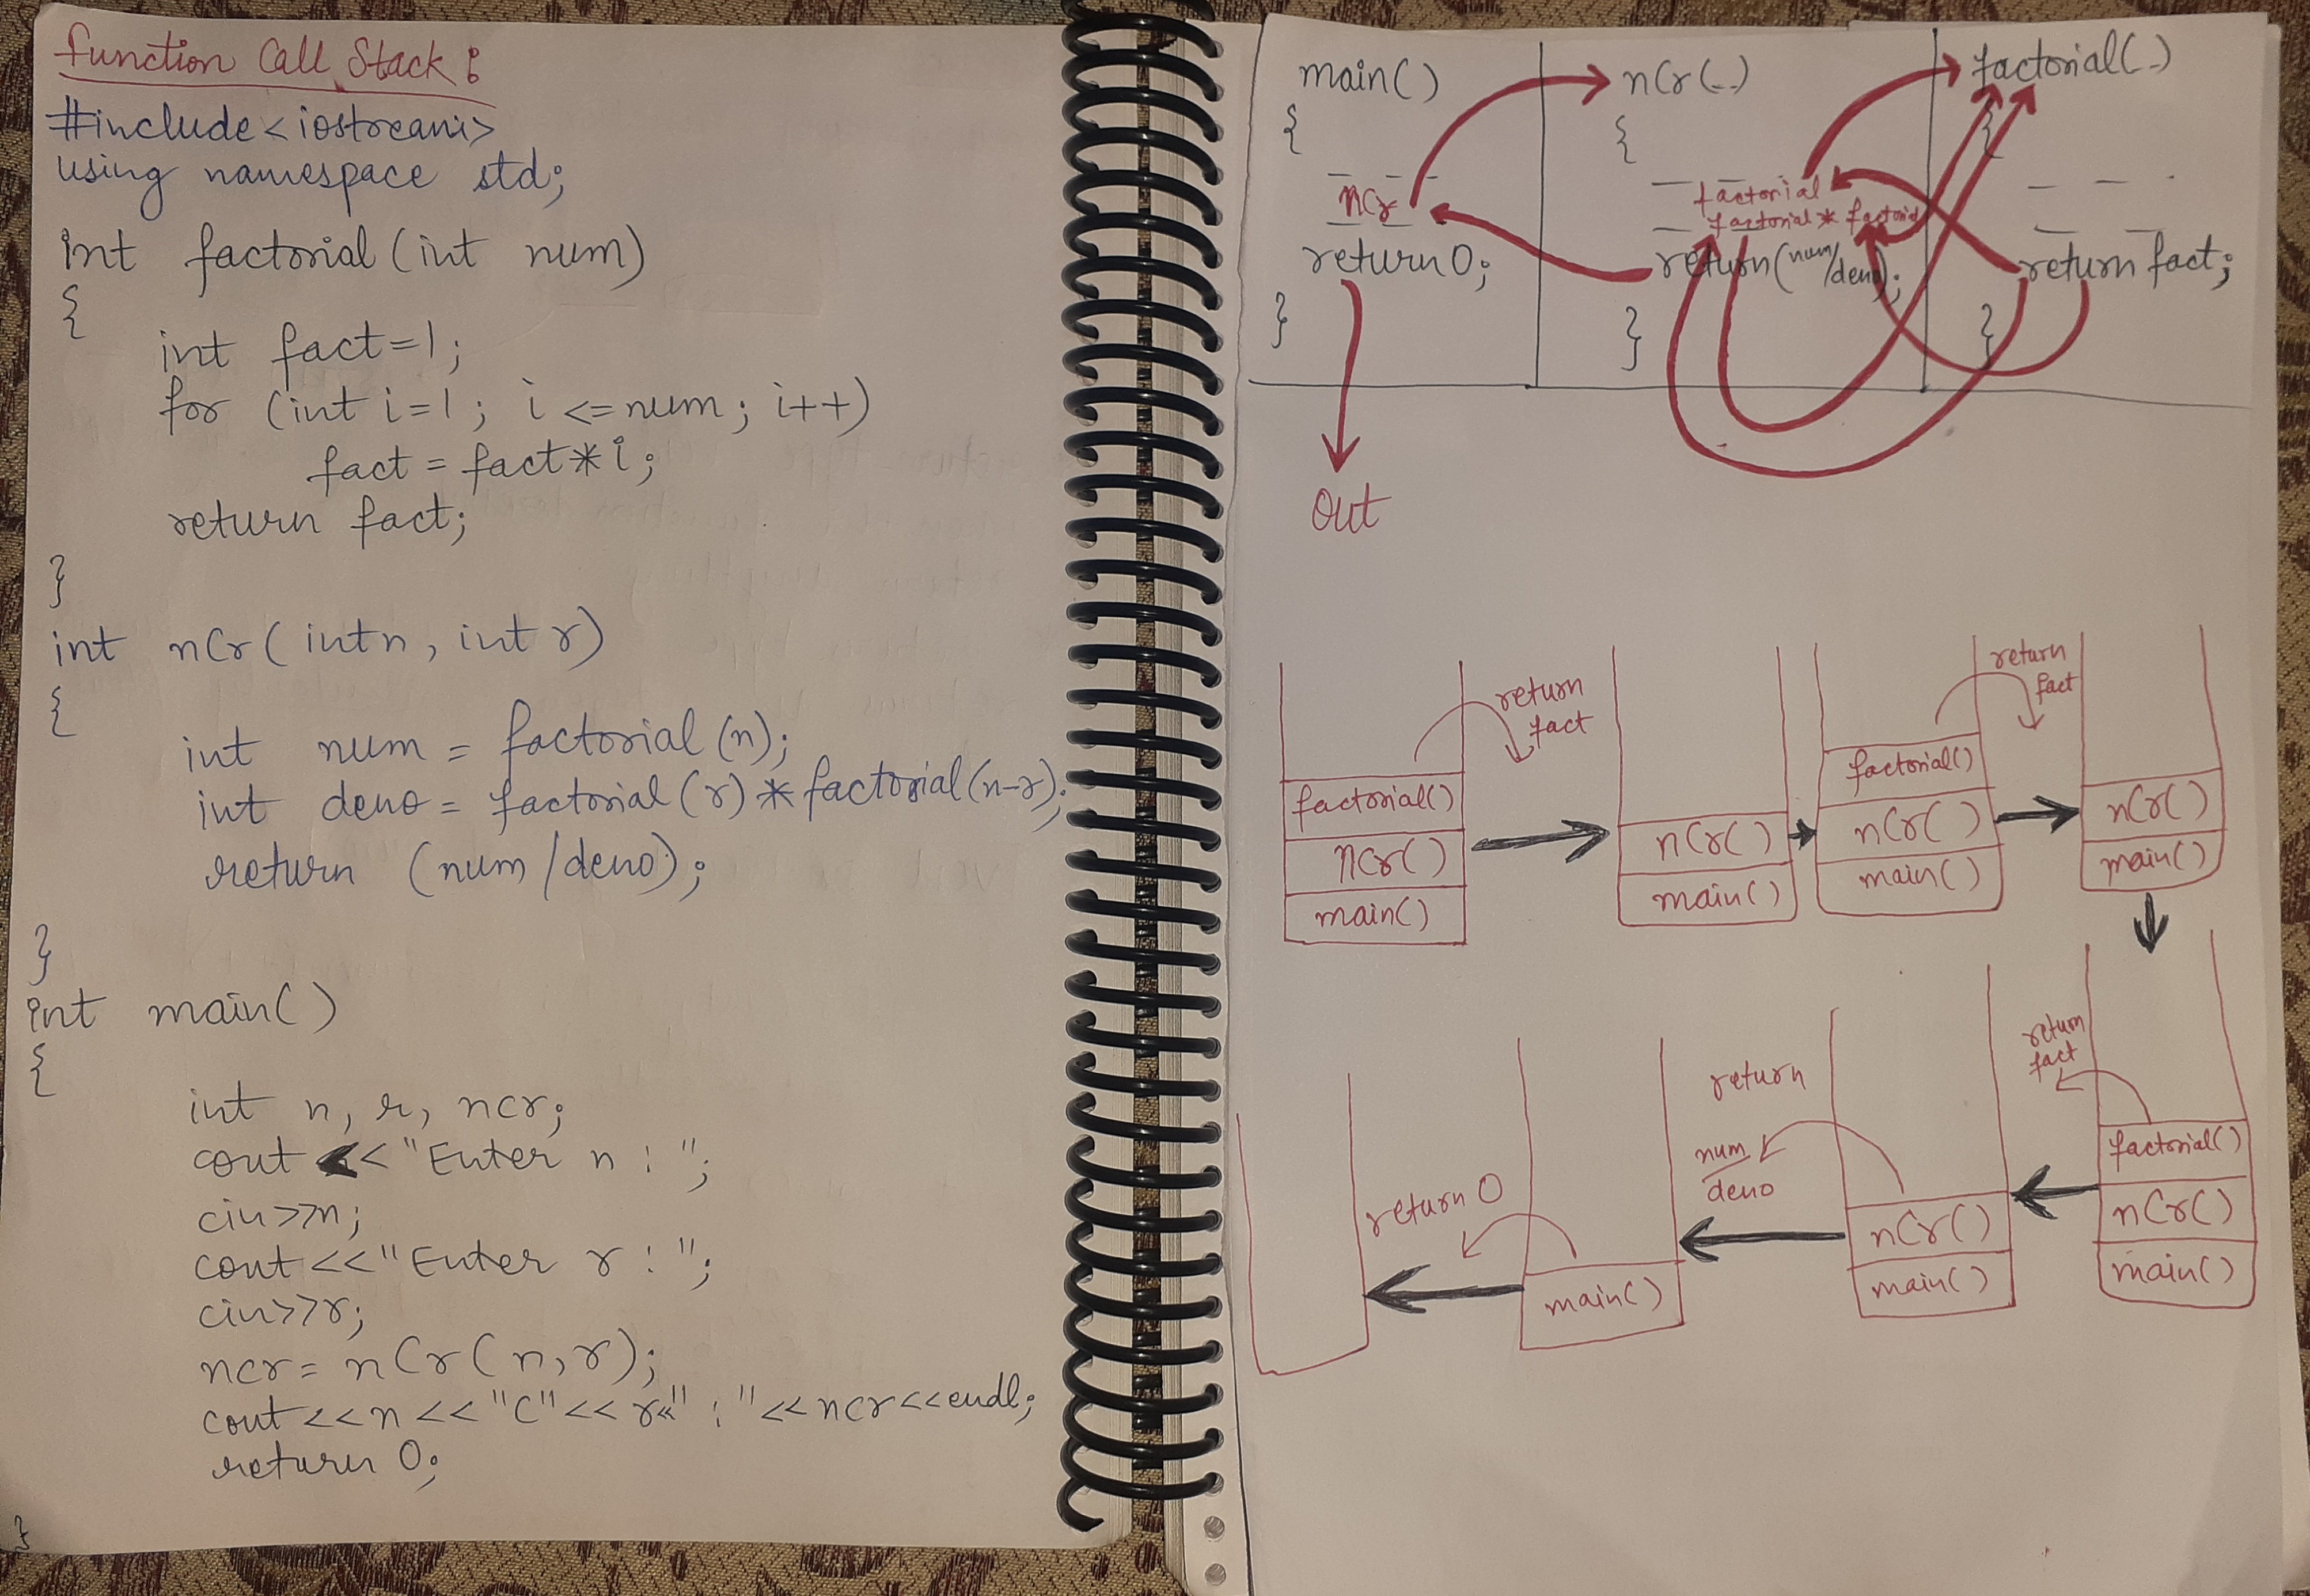 function Call Stack :
#include<iostream>
using namespace std;
int factorial (int num)
{
int fact=1;
for (int i=1; i <=num; i++)
fact = fact*i;
return fact;
}
int nCr( int n, int r)
{
int num = factorial (n);
int deno = factorial (r) * factorial (n-r);
return (num/deno);
}
int main()
{
int n, r, ncr;
cout <<"Enter n : ";
cin>>n;
cout <<"Enter r : ";
cin>>r;
ncr= nCr(n,r);
cout <<n << "C" << r<<" : "<<ncr<<endl;
return 0;
}
main()
{
nCr
return 0;
}
Out
nCr(--)
{
factorial
factorial * factorial
return(num/deno);
}
factorial(-)
{
return fact;
}
return
fact
factorial()
nCr()
main()
nCr()
main()
return
fact
factorial()
nCr()
main()
nCr()
main()
return
fact
factorial()
nCr()
main()
return
num
deno
nCr()
main()
return 0
main()